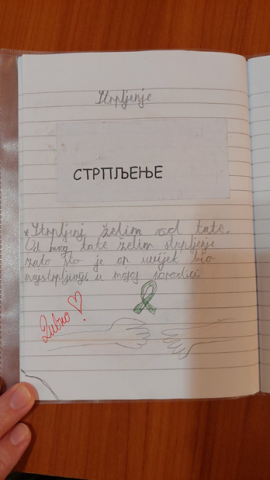 Strpljenje
СТРПЉЕЊЕ
* Strpljenj želim od tate.
Od mog tate želim strpljenje
zato što je on uvijek bio
najstrpljiviji u mojoj porodici